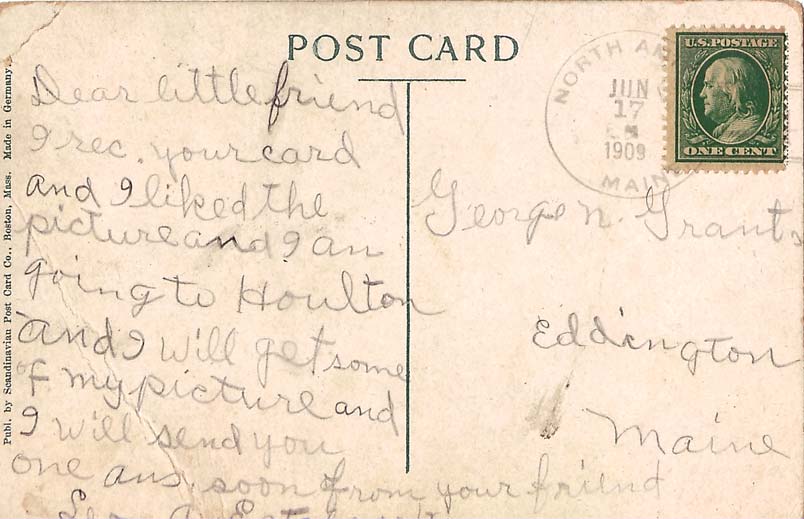 POST CARD
Publ. by Scandinavian Post Card Co., Boston, Mass. Made in Germany.
Dear little friend
I rec. your card
and I liked the
picture and I an
going to Houlton
and I will get some
of my picture and
I will send you
one ans. soon from your friend
NORTH
JUN
17
1909
MAIN
U.S. POSTAGE
ONE CENT
George N. Grant
Eddington
Maine